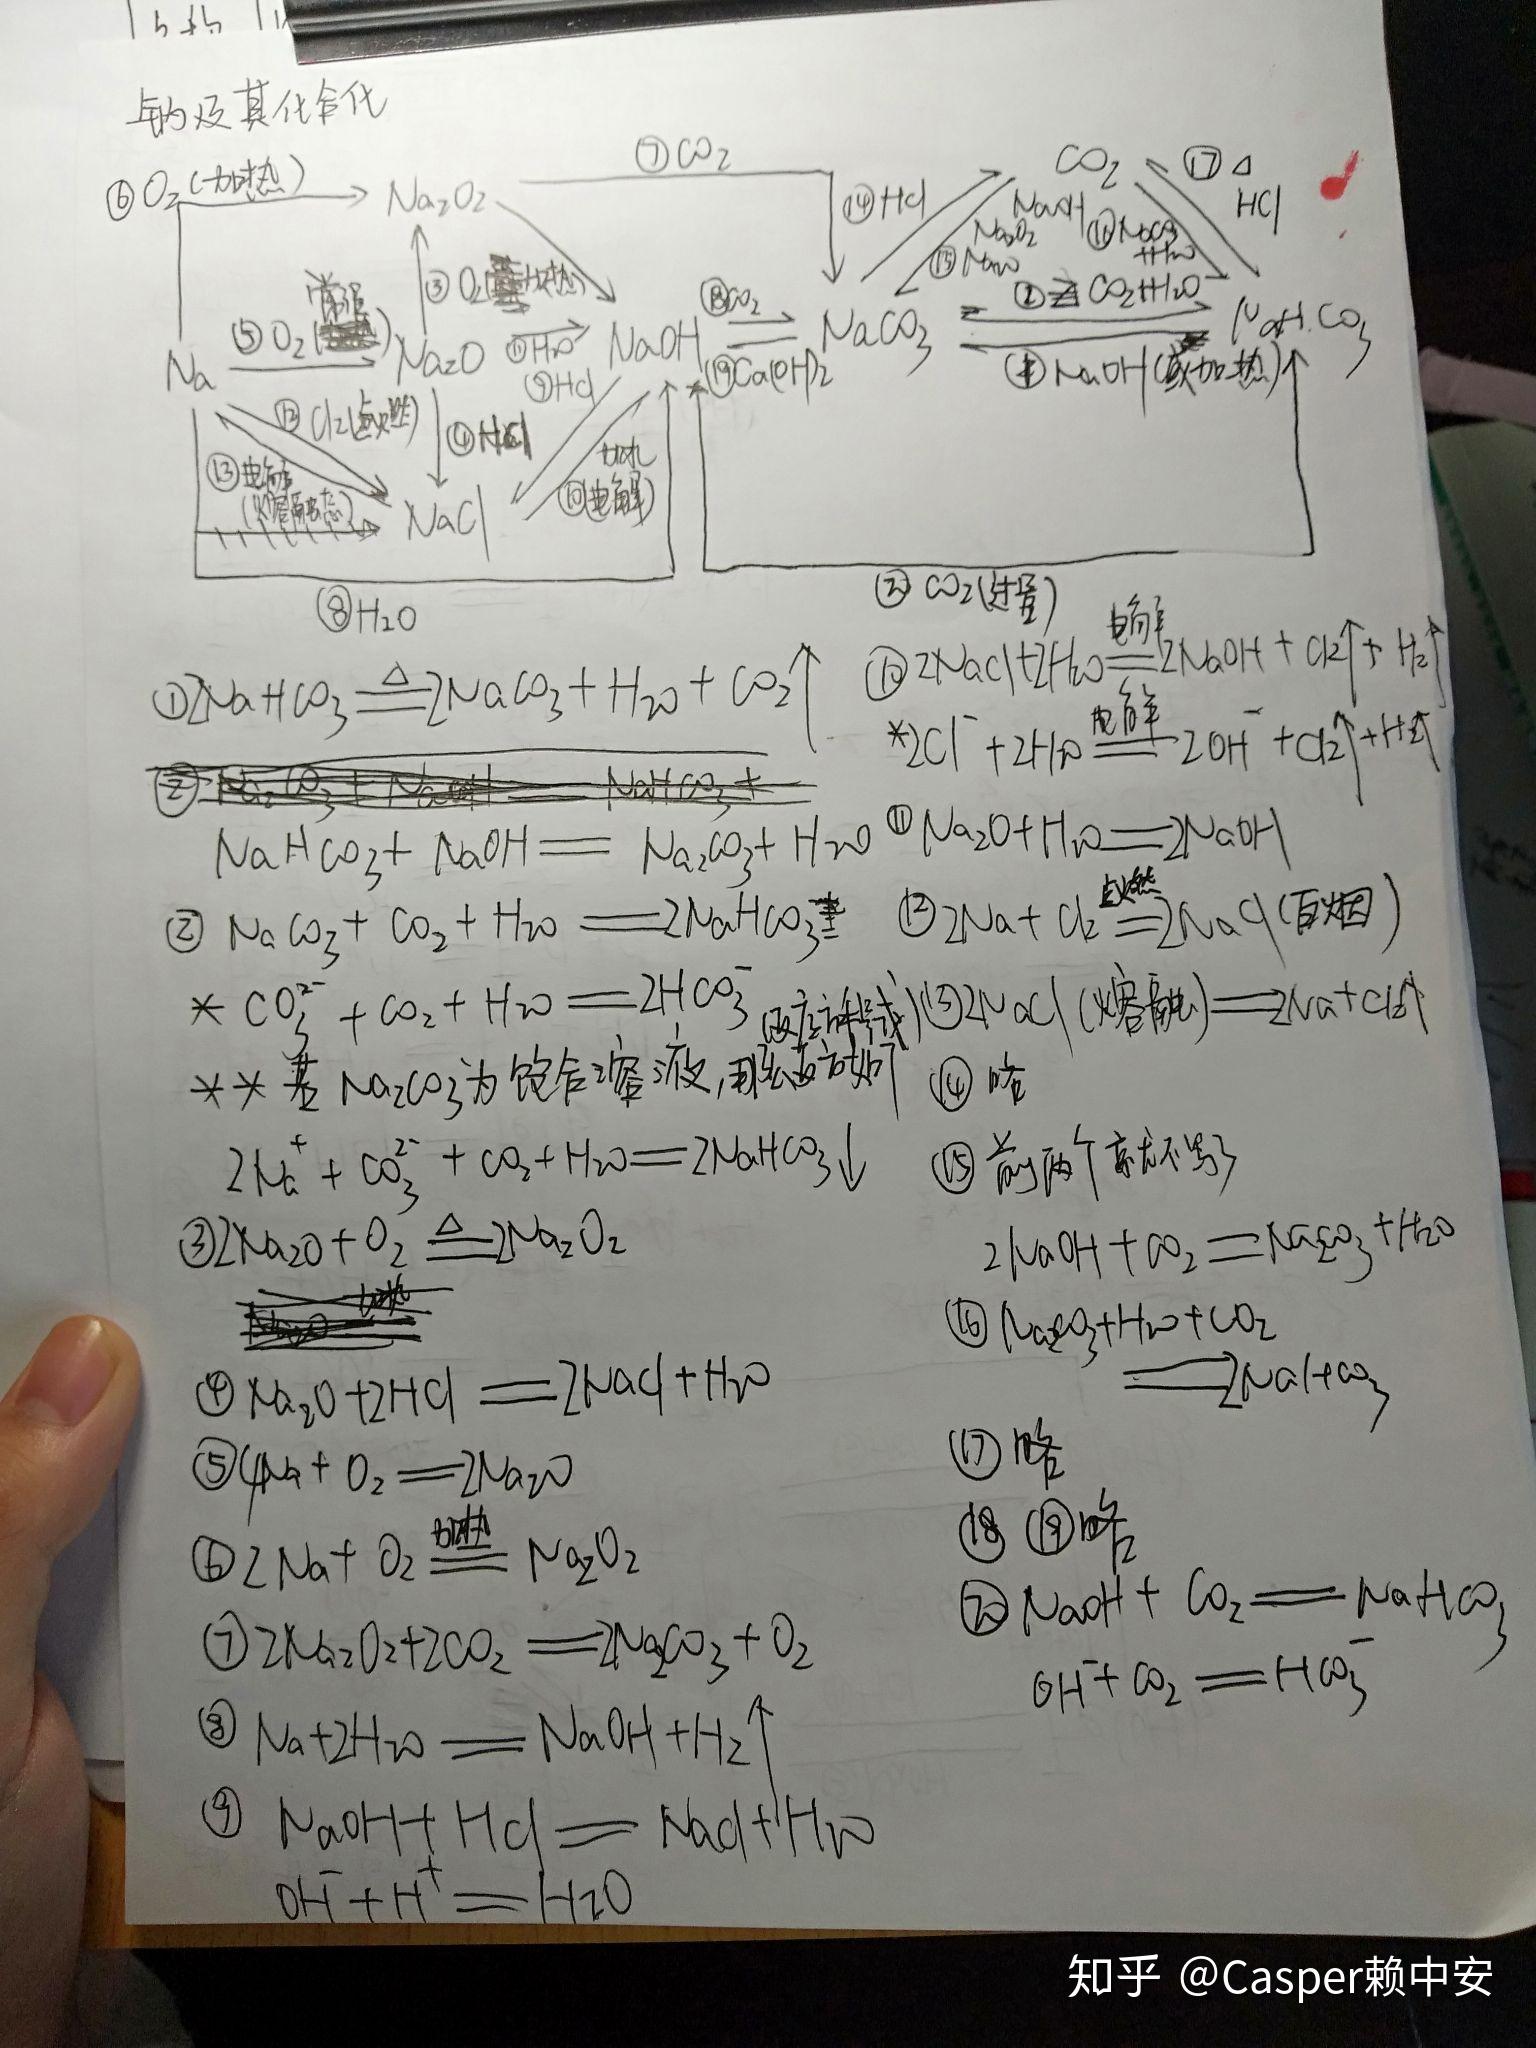 钠及其化合化
⑥O₂(加热)
Na₂O₂
⑦CO₂
⑭HCl
CO₂
⑰△
HCl
NaOH
Na₂O₂
⑮Na₂O
⑯
+H₂O
③O₂(加热)
常温
⑤O₂()
⑪H₂O
⑱CO₂
② CO₂+H₂O
Na
Na₂O
NaOH
NaCO₃
NaH.CO₃
⑨HCl
⑲Ca(OH)₂
NaOH(或加热)
⑫Cl₂(点燃)
④HCl
⑬电解
(熔融状态)
加水
⑩(电解)
NaCl
⑧H₂O
⑳CO₂(过量)
①2NaHCO₃ =△= 2NaCO₃+H₂O+CO₂↑
NaHCO₃+NaOH=Na₂CO₃+H₂O
②NaCO₃+CO₂+H₂O=2NaHCO₃
*CO₃²⁻+CO₂+H₂O=2HCO₃⁻
**若Na₂CO₃为饱合溶液,
2Na⁺+CO₃²⁻+CO₂+H₂O=2NaHCO₃↓
③2Na₂O+O₂ =△= 2Na₂O₂
④Na₂O+2HCl=2NaCl+H₂O
⑤4Na+O₂=2Na₂O
⑥2Na+O₂ =加热= Na₂O₂
⑦2Na₂O₂+2CO₂=2Na₂CO₃+O₂
⑧Na+2H₂O=NaOH+H₂↑
⑨NaOH+HCl=NaCl+H₂O
OH⁻+H⁺=H₂O
⑩2NaCl+2H₂O =电解= 2NaOH+Cl₂↑+H₂↑
*2Cl⁻+2H₂O =电解= 2OH⁻+Cl₂↑+H₂↑
⑪Na₂O+H₂O=2NaOH
⑫2Na+Cl₂ =点燃= 2NaCl(白烟)
⑬2NaCl(熔融)=2Na+Cl₂↑
⑭略
⑮前两个就不写了
2NaOH+CO₂=Na₂CO₃+H₂O
⑯Na₂CO₃+H₂O+CO₂
=2NaHCO₃
⑰略
⑱⑲略
⑳NaOH+CO₂=NaHCO₃
OH⁻+CO₂=HCO₃⁻
知乎 @Casper赖中安